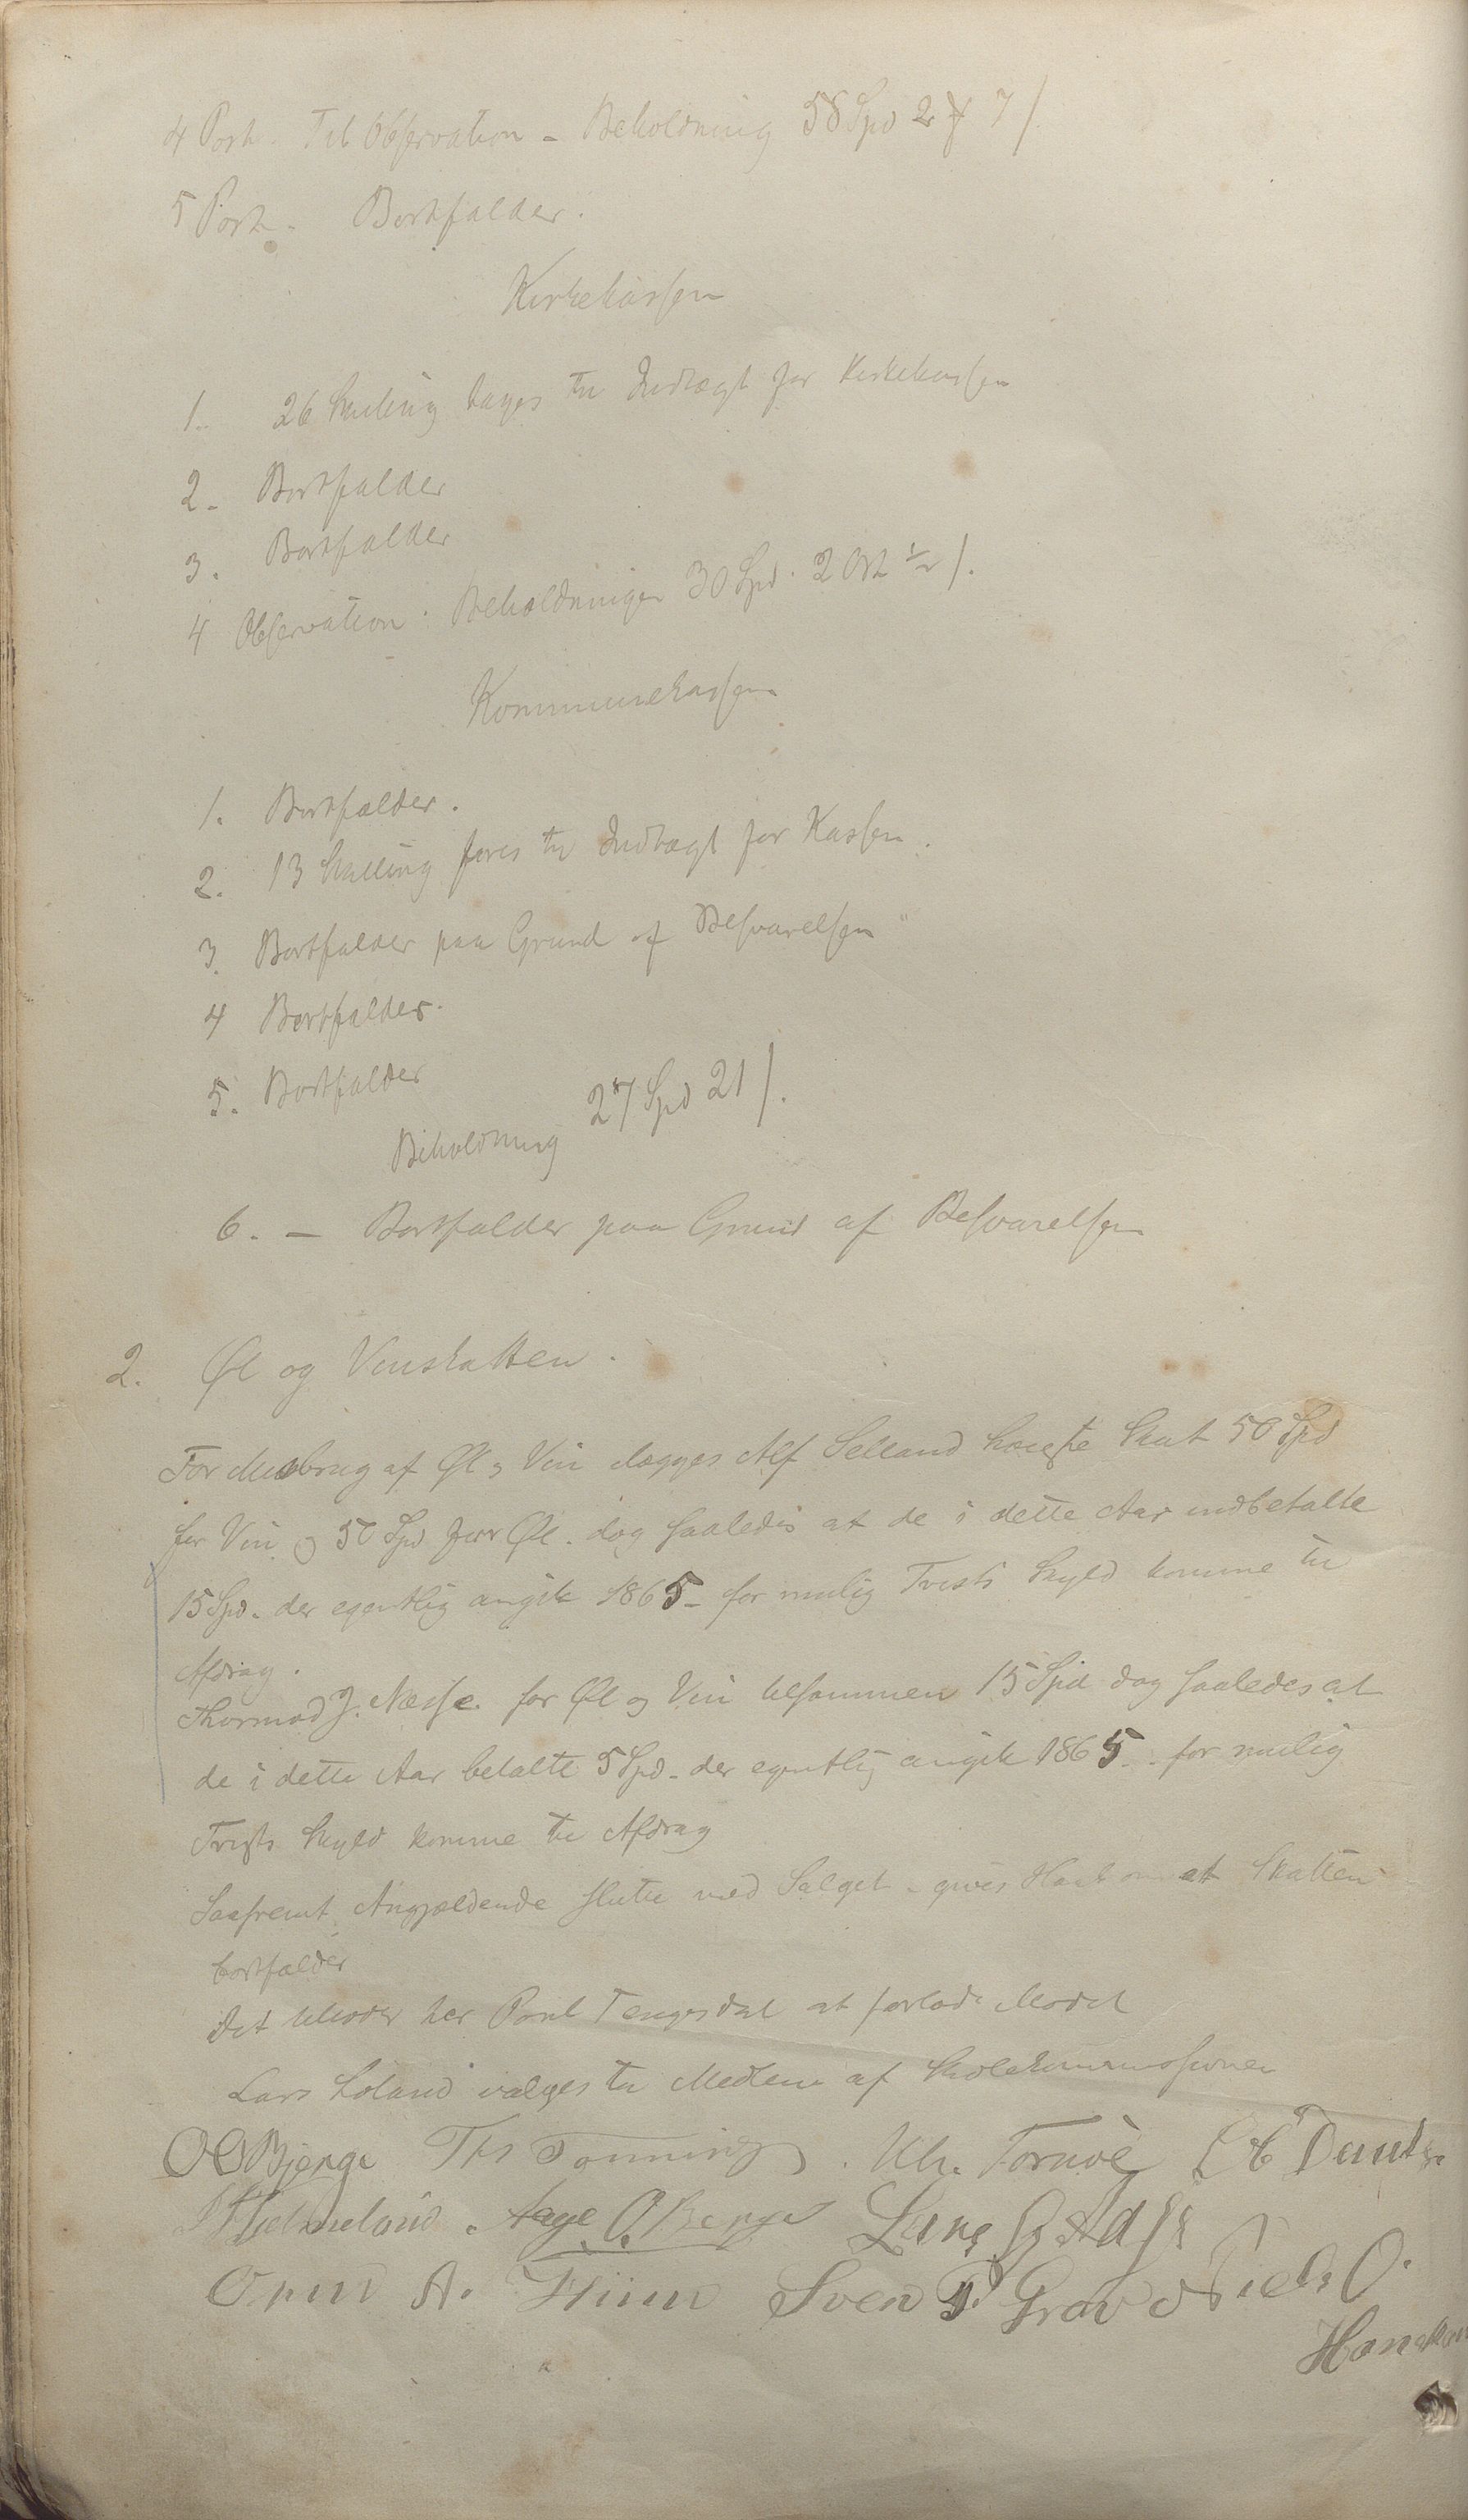 4 Post. Til Observation - Beholdning 58 Spd 2 7 /.
5 Post. Bortfalder.
Kirkekassen
1. 26 Skilling tages til Indtægt for Kirkekassen
2. Bortfalder
3. Bortfalder
4 Observation: Beholdningen 30 Spd. 2 Ort /.
Kommunekassen
1. Bortfalder.
2. 13 Skilling føres til Indtægt for Kassen.
3. Bortfalder paa Grund af Besvarelsen
4 Bortfalder.
5. Bortfalder
Beholdning 27 Spd 21 /.
6. - Bortfalder paa Grund af Besvarelsen
2. Øl og Vinskatten.
For Misbrug af Øl og Vin lægges Alf Selland høieste Skat 50 Spd
for Vin og 50 Spd for Øl. dog saaledes at de i dette Aar indbetalte
15 Spd. der egentlig angik 1865 - for mulig Trists Skyld komme til
Afdrag.
Thormod J. Næsse for Øl og Vin tilsammen 15 Spd dog saaledes at
de i dette Aar betalte 5 Spd - der egentlig angik 1865 - for mulig
Trists Skyld komme til Afdrag
Saafremt Angjældende slutte med Salget - gives Haab om at Skatten
bortfalder
Det tillodes her Poul Tengesdal at forlade Mødet
Lars Løland valges til Medlem af Skolekommissionen
O O Bjerge Ths Tonning. Ul. Tornøe
Helmeland. Aage O. Berge Lars
Orm A. Fiinn Sven Grov Niels O.